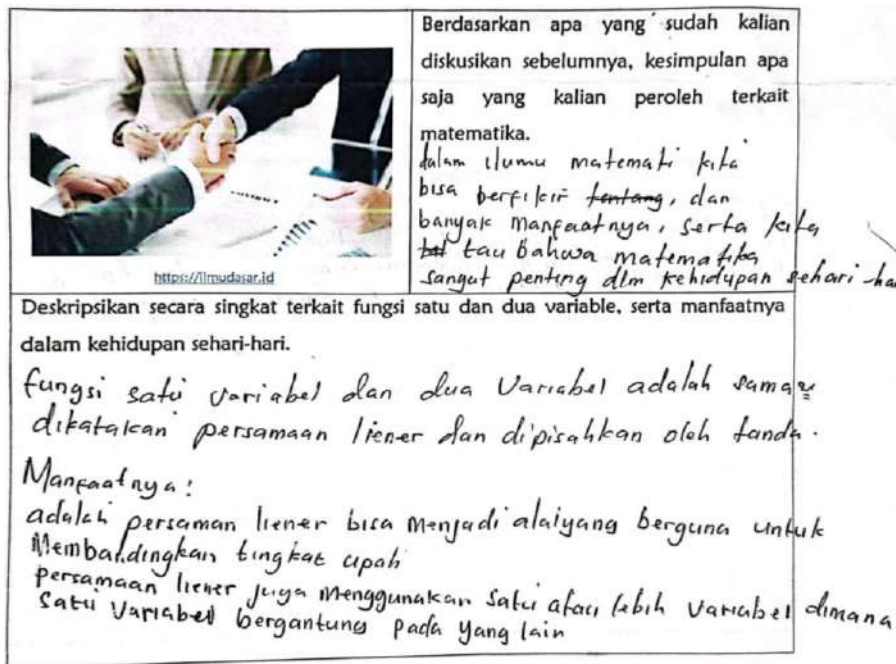 https://ilmudasar.id
Berdasarkan apa yang sudah kalian
diskusikan sebelumnya, kesimpulan apa
saja yang kalian peroleh terkait
matematika.
dalam ilumu matemati kita
bisa berfikir tentang, dan
banyak manfaatnya, serta kita
tau bahwa matematika
sangat penting dlm kehidupan sehari-hari
Deskripsikan secara singkat terkait fungsi satu dan dua variable, serta manfaatnya
dalam kehidupan sehari-hari.
fungsi satu variabel dan dua variabel adalah sama2
dikatakan persamaan liener dan dipisahkan oleh tanda.
Manfaatnya:
adalah persaman liener bisa menjadi alaiyang berguna untuk
Membandingkan tingkat upah
persamaan liener juga menggunakan satu atau lebih variabel dimana
satu variabel bergantung pada yang lain